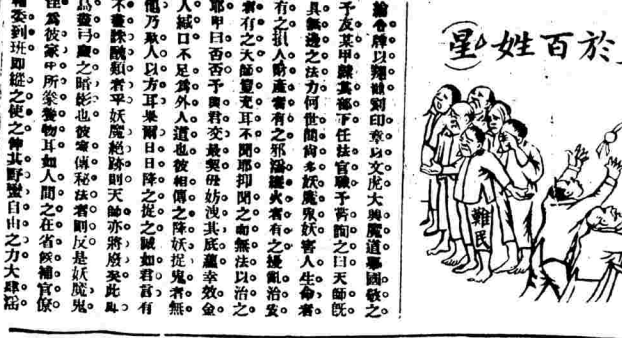 於百姓(星)
難民
令牌以翔劉印章以文虎大興魔道國敬之
予友某甲隸其部下任法官職予嘗詢之曰天師旣
具無邊之法力何世間尚多妖魔鬼妖害人生命者。
有之損人財產者有之邪淫縱火者有之擾亂治安
者有之大師豈充耳不聞耶抑聞之而無法以治之
耶甲曰否否予與君交最契毋妨洩其底蘊幸效金
人緘口不足爲外人道也彼相傳之降妖捉鬼者無
他乃欺人以方耳果爾日日降之捉之誠如君言有
不盡誅醜類者乎妖魔絕跡則天師亦將廢矣此
爲弓之暗影也彼家傳秘法者則反是妖魔鬼
怪爲彼家中所豢養物耳如人間之在省候補官僚
委到班卽縱之使之伸其野蠻自由之力大肆淫